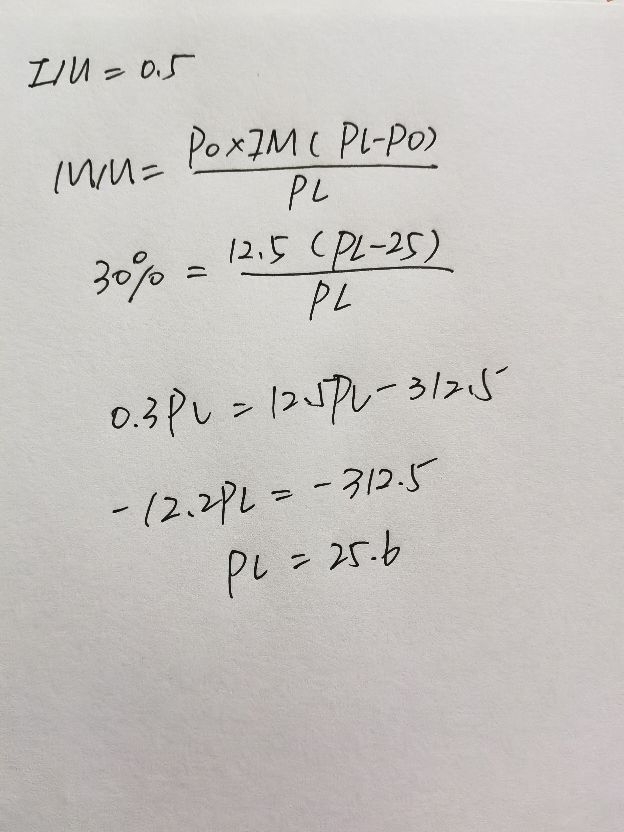 IM = 0.5
MM = P0×IM( PL-P0) / PL
30% = 12.5 (PL-25) / PL
0.3PL = 12.5PL-312.5
-12.2PL = -312.5
PL = 25.6